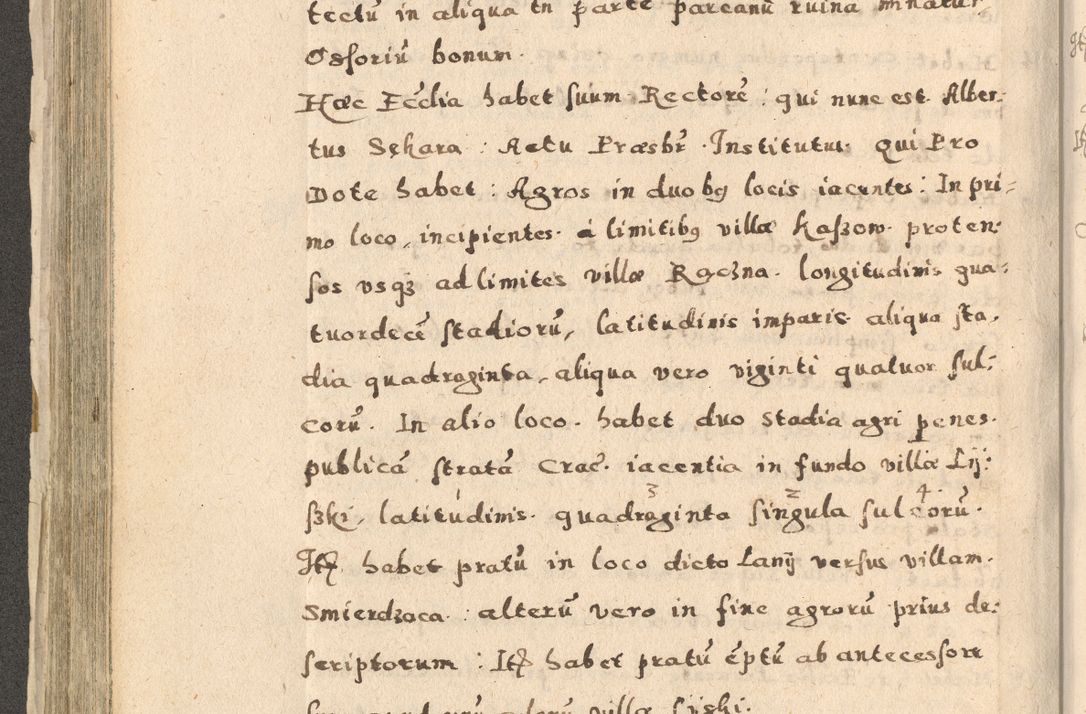 tectū in aliqua tn parte parcanū ruina minatur
Ossoriū bonum.
Hæc Eccl̃ia habet suum Rectorē: qui nunc est Alber-
tus Sękara: Actu Præsbr̃ Institutus. Qui Pro
Dote habet: Agros in duobq locis iacentes: In pri=
mo loco, incipientes à limitibq villæ Kaßow proten:
sos vsq ad limites villæ Rączna. longitudinis qua:
tuordecē stadiorū, latitudinis imparis aliqua sta,
dia quadraginta, aliqua vero viginti quatuor sul:
corū. In alio loco habet duo stadia agri penes
publicā stratā Crac. iacentia in fundo villæ Lij:
szki, latitudinis quadraginta singula sulcorū.
1 3 2 4
Itē habet pratū in loco dicto Lanij versus villam
Smierdzaca: alterū vero in fine agrorū prius de:
scriptorum: Itē habet pratū ēptū ab antecessore
villæ Lishi.